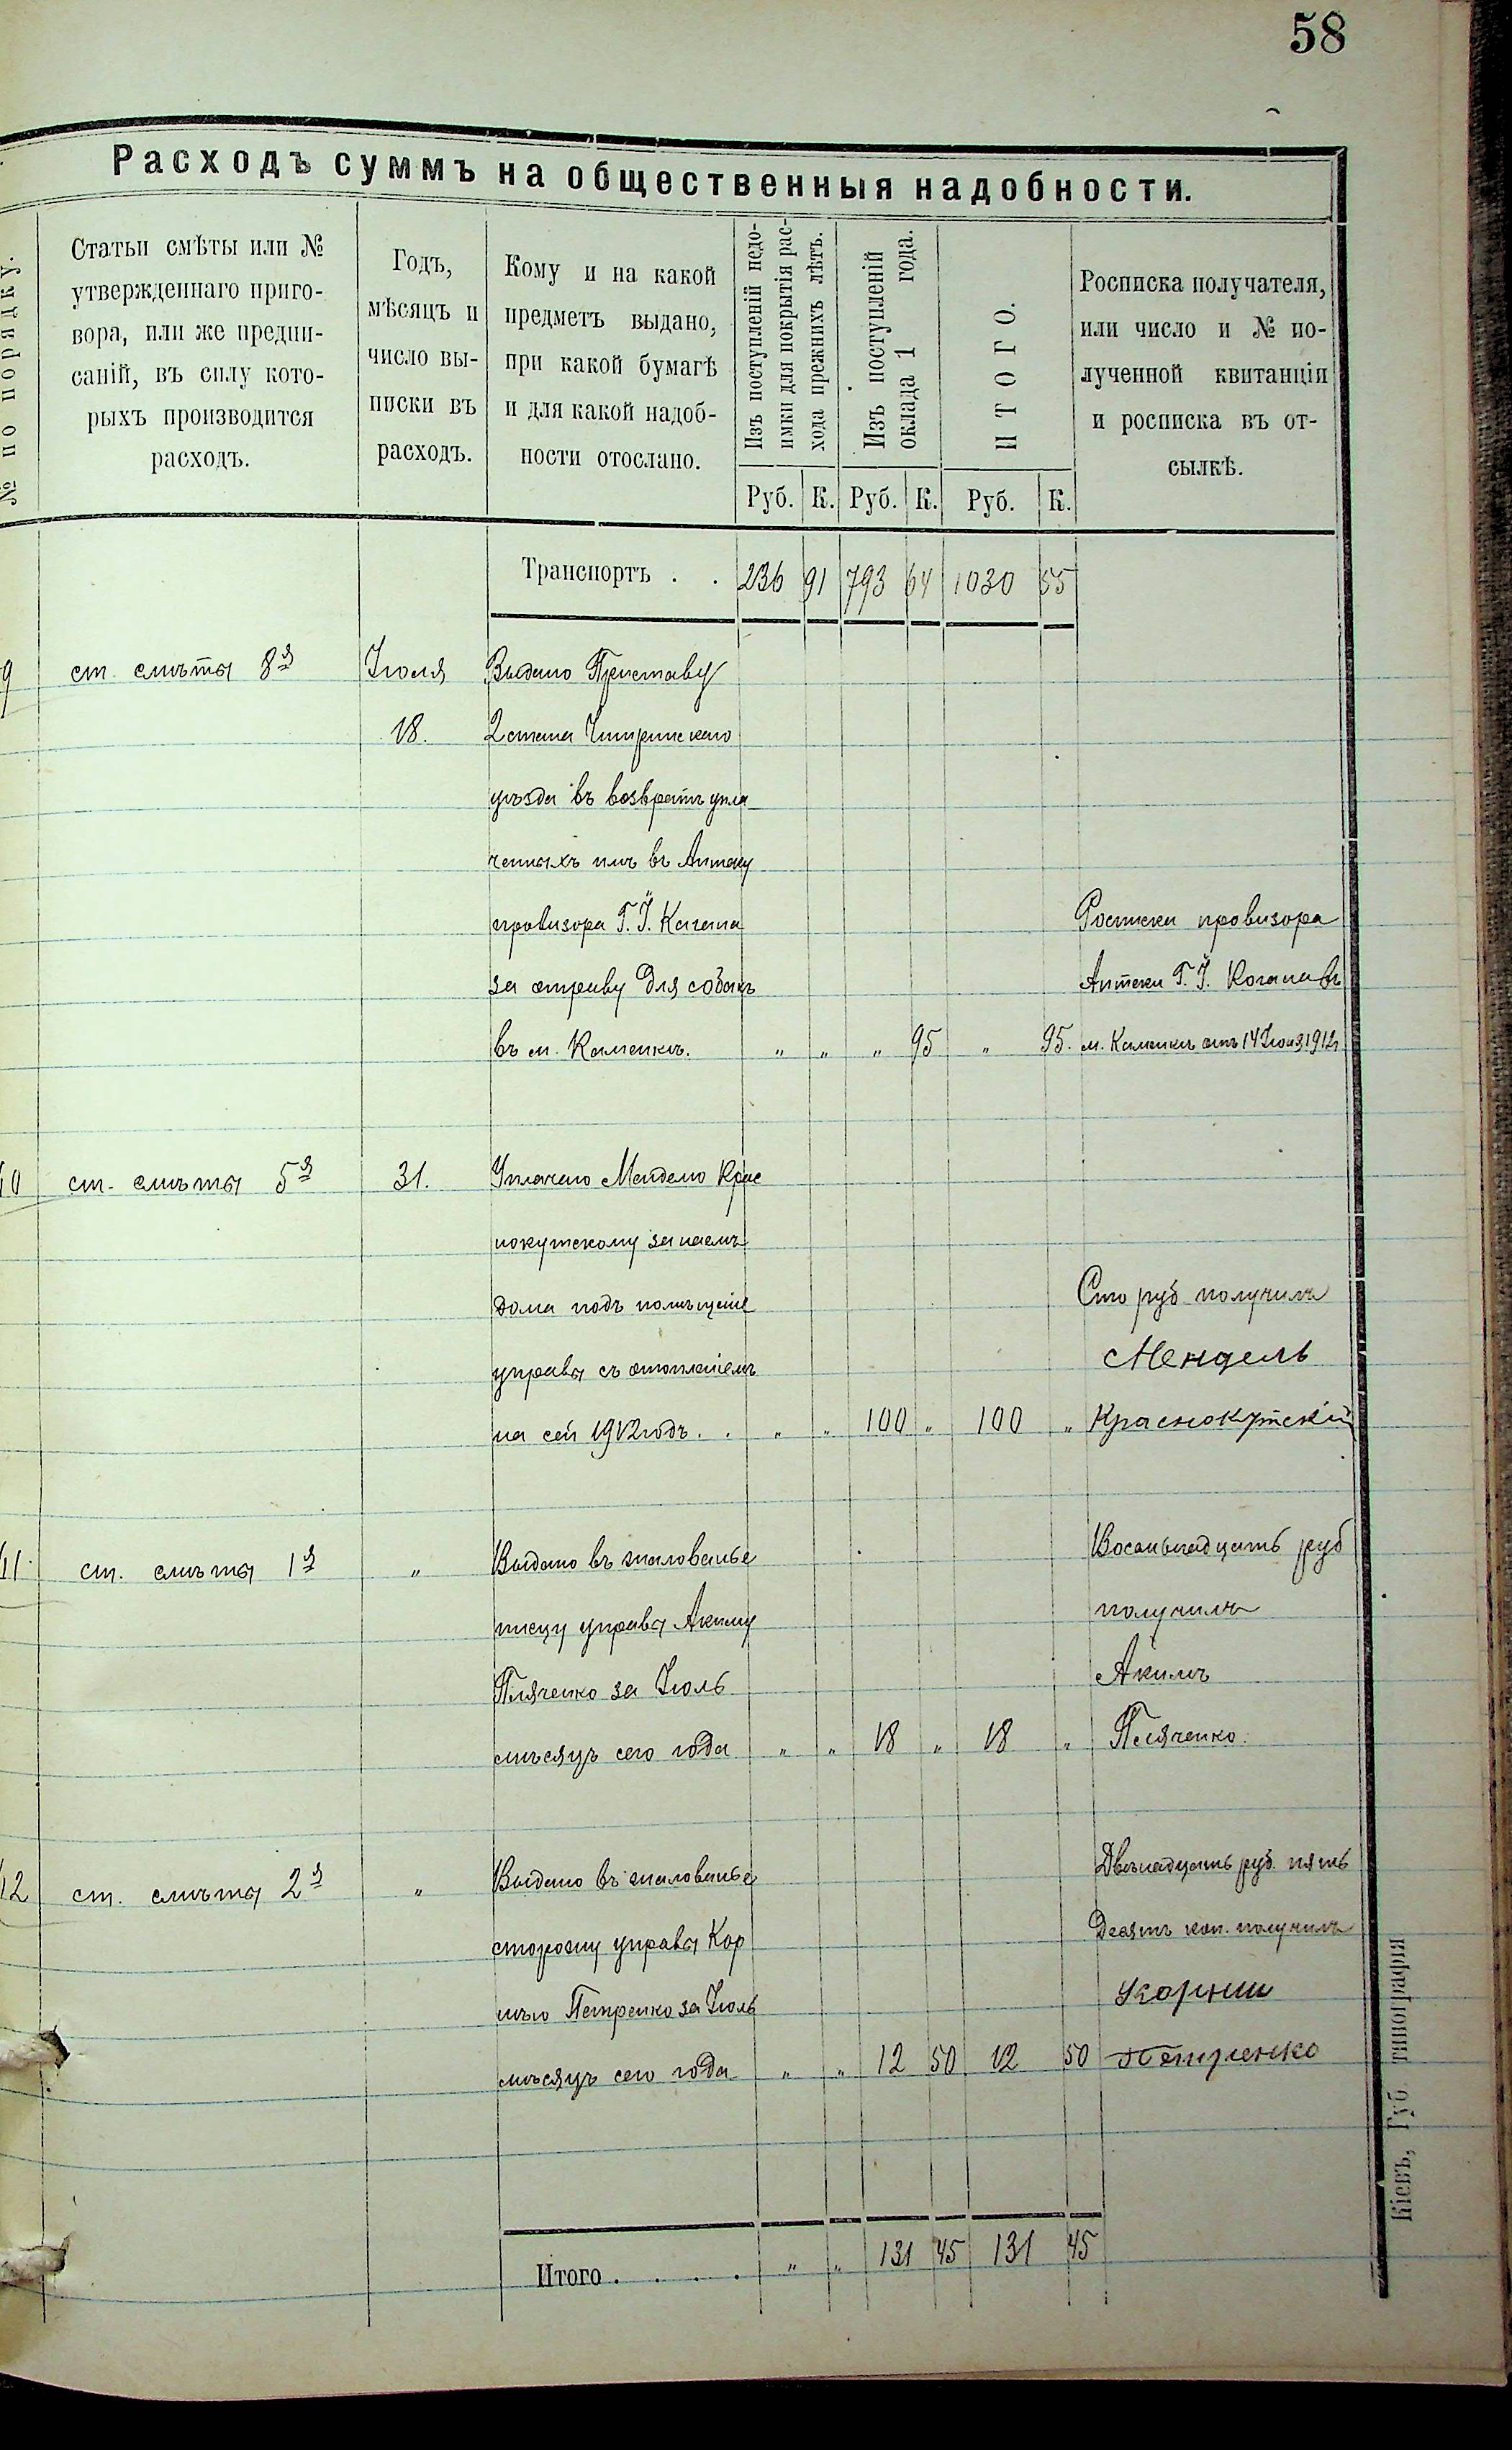 58
Расходъ суммъ на общественныя надобности.
№ по порядку.
Статьи смѣты или №
утвержденнаго приго-
вора, или же предпи-
саній, въ силу кото-
рыхъ производится
расходъ.
Годъ,
мѣсяцъ и
число вы-
писки въ
расходъ.
Кому и на какой
предметъ выдано,
при какой бумагѣ
и для какой надоб-
ности отослано.
Изъ поступленій недо-
имки для покрытія рас-
хода прежнихъ лѣтъ.
Изъ поступленій
оклада 1 года.
ИТОГО.
Росписка получателя,
или число и № по-
лученной квитанціи
и росписка въ от-
сылкѣ.
Руб. К. Руб. К. Руб. К.
Транспортъ . . 236 91 793 64 1030 55
9 ст. смѣты 8я Іюля Выдано Приставу
18. 2 стана Чигринскаго
уѣзда въ возвратъ упла
ченныхъ имъ въ Аптеку
провизора Г. І. Кагана Росписка провизора
за отраву для собакъ Аптеки Г. І. Когана въ
въ м. Каменкѣ. " " " 95 " 95. м. Каменкѣ отъ 14 Іюля 1912 г
10 ст. смѣты 5я 31. Уплачено Менделю Крас
нокутскому за наемъ
дома подъ помѣщеніе Сто руб получилъ
управы съ отопленіемъ Мендель
на сей 1912 годъ. . " " 100 " 100 " Краснокутскій
11. ст. смѣты 1я " Выдано въ жалованье Восемьнадцать руб
писцу управы Акиму получилъ
Пляченко за Іюль Акимъ
мѣсяцъ сего года " " 18 " 18 " Пляченко.
12 ст. смѣты 2я " Выдано въ жалованье Двѣнадцать руб. пять
сторожу управы Кор десятъ коп. получилъ
нѣю Петренко за Іюль Корнии
мѣсяцъ сего года " " 12 50 12 50 Петренко
Итого . . . . " " 131 45 131 45
Кіевъ, Губ. типографія